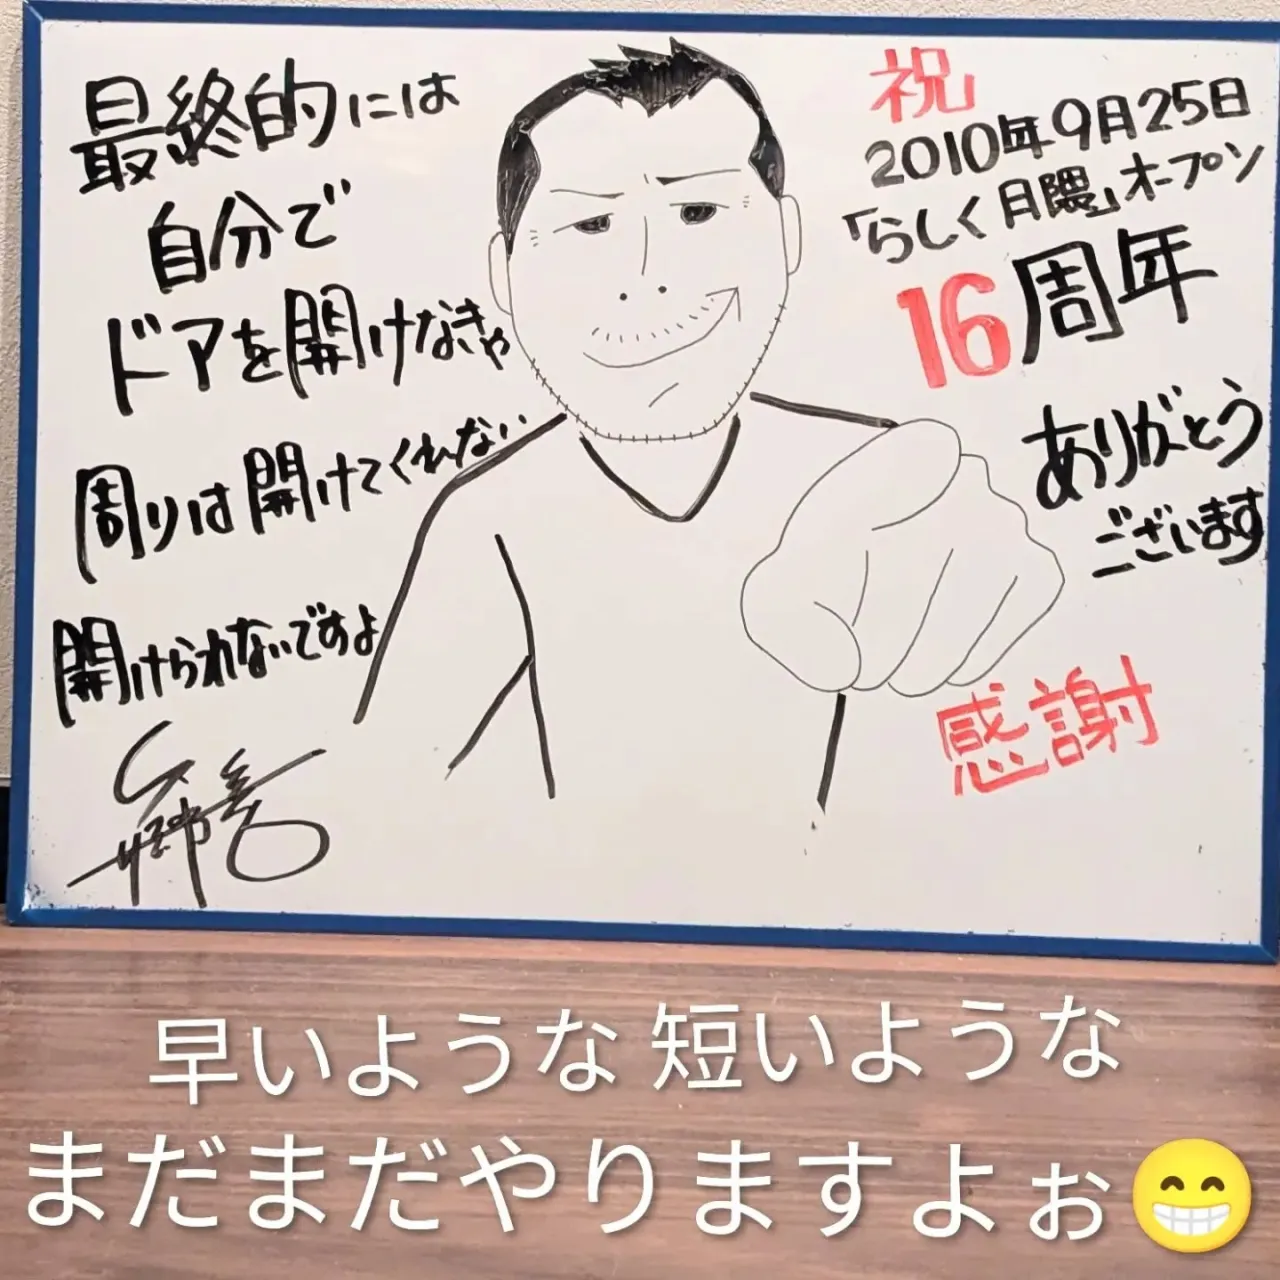 最終的には
自分で
ドアを開けなきゃ
周りは開けてくれない
開けられないですよ
祝
2010年9月25日
「らしく日隈」オープン
16周年
ありがとう
ございます
感謝
早いような 短いような
まだまだやりますよぉ😁